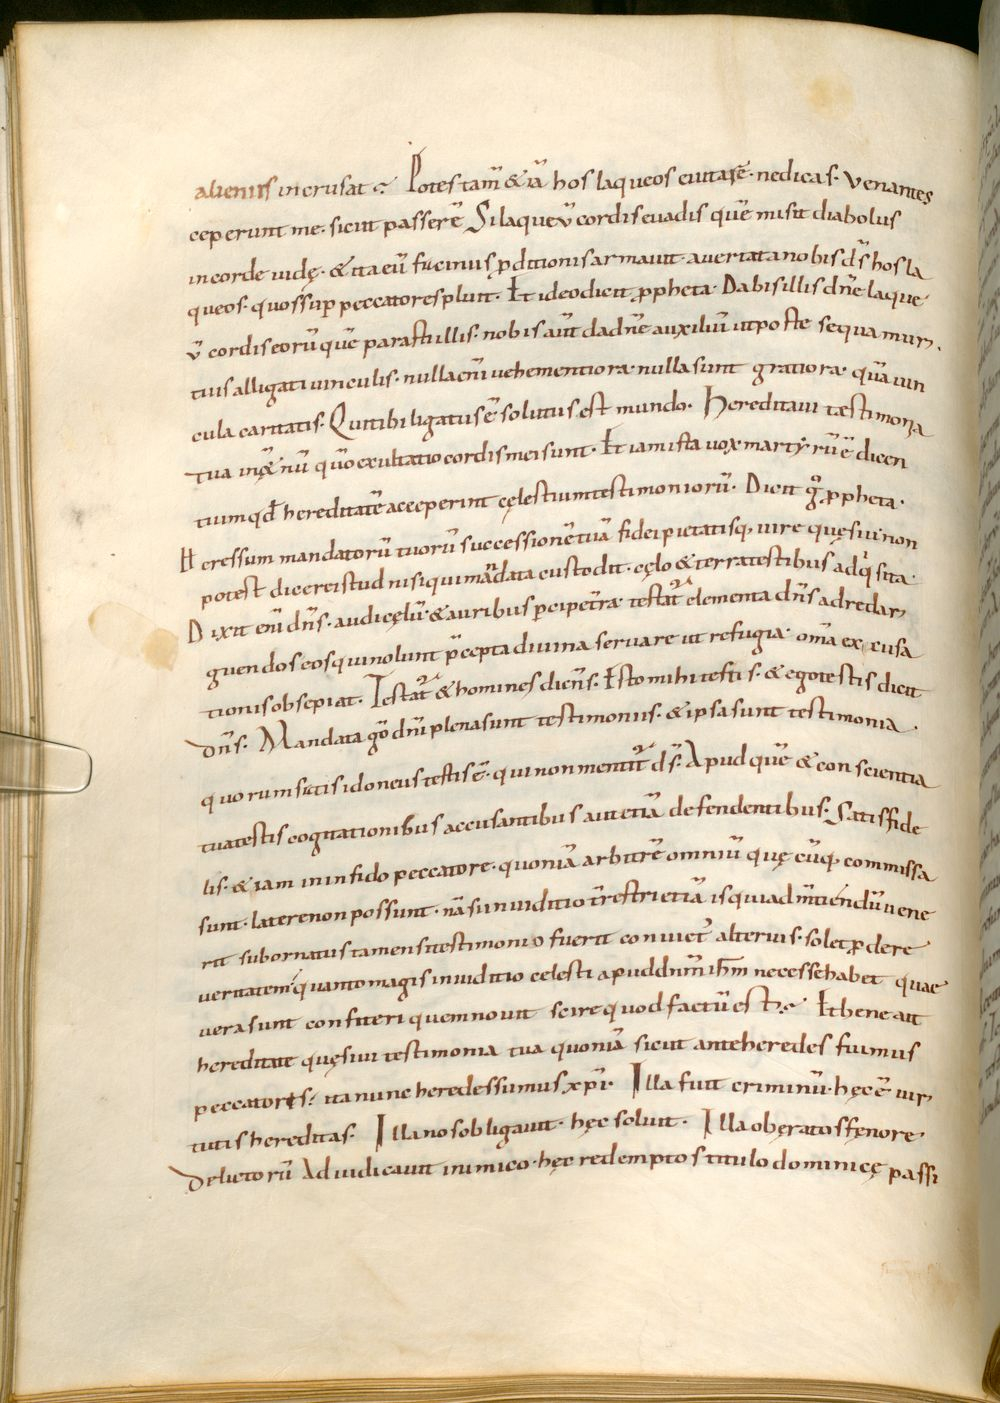 alienis incrusat. Potes tam̄ & iā hos laqueos euitare. ne dicas. Venantes
ceperunt me. sicut passerē Si laqueū cordis euadis quē misit diabolus
in corde iudę. & ita eū fucinus ꝑditionis armauit. auertat a nobis d̄s hos la
queos. quos sup̄ peccatores pluit. Et ideo dicit ꝓpheta. Dabis illis dn̄e laque
ū cordis eorū quē parasti illis. nobis aūt da dn̄e auxiliū ut post te sequamur,
tuis alligati uinculis. nulla en̄i uehementiora nulla sunt gratiora quā uin
cula caritatis. Qui tibi ligatus ē solutus est mundo. Hereditaui tæstimonia
tua in ǣnū quō exultatio cordis mei sunt. Et iam ista uox martyrū ē dicen
tium qđ hereditatē acceperint cęlestium testimoniorū. Dicit g̊ ꝓpheta.
Heres sum mandatorū tuorū successionē tuā fidei pietatisq, uire quęsiui. non
potest dicere istud nisi qui mandata custodit. cęlo & terra testibus adq̇sita.
Dixit eni dn̄s. audi cęlū. & auribus ꝑcipe t̄ra testat᷑ elementa dn̄s ad redar,
guendos eos qui nolunt p̄cepta diuina seruare ut refugia om̄a excusa
tionis obsepiat. Testat᷑ & homines dicēs. Esto mihi testis. & ego testis dicit
dn̄s. Mandata g̊ dn̄i plena sunt testimoniis. & ipsa sunt testimonia.
quorum satis idoneus testis ē. qui non mentit᷑ d̄s. Apud quē & conscientia
tua testis cogitationibus accusantibus aut etiā defendentibus. Satis fide
lis. & iam in infido peccatore. quoniā arbitrē omniū quę cūq, commissa
sunt. latere non possunt. nā si in iuditio t̄restri etiā is qui ad m̄tiendū uene
rit subornatus tamen si testimonio fuerit conuict᷑ alterius. solet ꝓdere
veritatem. quanto magis in iuditio celesti apud dn̄m ih̄m necesse habet quae
vera sunt confiteri quem nouit scire quod factū est. Et bene ait
hereditate quęsiui testimonia tua quoniā sicut ante heredes fuimus
peccatoris. ita nunc heredes sumus xp̄i. Illa fuit criminū. hęc ē uir,
tutis hereditas. Illa nos obligauit. hęc soluit. Illa obęratos fęnore
delictorū Adiudicauit inimico. hęc redemptos titulo dominicę passi